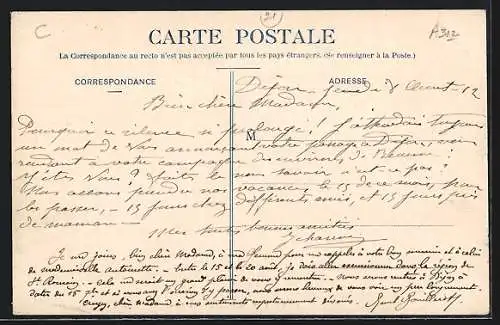 C
21
A 302
CARTE POSTALE
La Correspondance au recto n'est pas acceptée par tous les pays étrangers. (Se renseigner à la Poste.)
CORRESPONDANCE
ADRESSE
Dijon, Jeudi 8 Août 12
Bien chère Madame,
Pourquoi ce silence si prolongé ! J'attendais toujours
un mot de vous annonçant votre passage à Dijon, vous
rendant à votre campagne des environs de Beaune.
Y êtes-vous ? faites le nous savoir n'est-ce pas !
Nous allons prendre nos vacances, le 15 de ce mois, pour
les passer, 15 jours chez différents amis, et 15 jours près
de maman
Mes toutes bonnes amitiés
M
Je me joins, bien chère Madame, à me rappeler à votre bon souvenir et à celui
de mademoiselle Antoinette. Entre le 15 et le 20 août, je dois dans la région de
St Romain. Cela me ferait un grand plaisir de vous Nous serons rentrés à Dijon à
dater du 15 et si vous nous serons heureux de vous voir un peu longuement.
Croyez, chère Madame, à mes sentiments respectueusement dévoués.